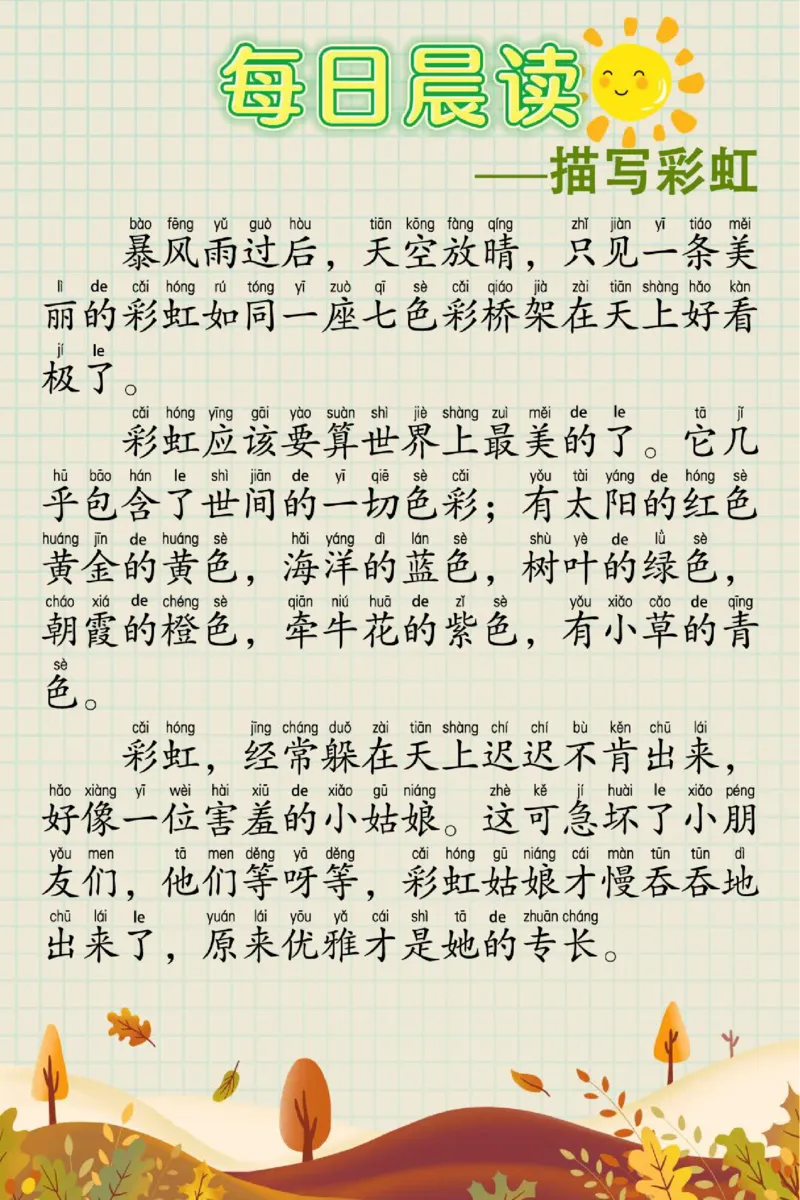 每日晨读
——描写彩虹
bào fēng yǔ guò hòu tiān kōng fàng qíng zhǐ jiàn yī tiáo měi
暴风雨过后，天空放晴，只见一条美
lì de cǎi hóng rú tóng yī zuò qī sè cǎi qiáo jià zài tiān shàng hǎo kàn
丽的彩虹如同一座七色彩桥架在天上好看
jí le
极了。
cǎi hóng yīng gāi yào suàn shì jiè shàng zuì měi de le tā jǐ
彩虹应该要算世界上最美的了。它几
hū bāo hán le shì jiān de yī qiē sè cǎi yǒu tài yáng de hóng sè
乎包含了世间的一切色彩；有太阳的红色
huáng jīn de huáng sè hǎi yáng dì lán sè shù yè de lǜ sè
黄金的黄色，海洋的蓝色，树叶的绿色，
cháo xiá de chéng sè qiān niú huā de zǐ sè yǒu xiǎo cǎo de qīng
朝霞的橙色，牵牛花的紫色，有小草的青
sè
色。
cǎi hóng jīng cháng duǒ zài tiān shàng chí chí bù kěn chū lái
彩虹，经常躲在天上迟迟不肯出来，
hǎo xiàng yī wèi hài xiū de xiǎo gū niáng zhè kě jí huài le xiǎo péng
好像一位害羞的小姑娘。这可急坏了小朋
yǒu men tā men děng yā děng cǎi hóng gū niáng cái màn tūn tūn dì
友们，他们等呀等，彩虹姑娘才慢吞吞地
chū lái le yuán lái yōu yǎ cái shì tā de zhuān cháng
出来了，原来优雅才是她的专长。